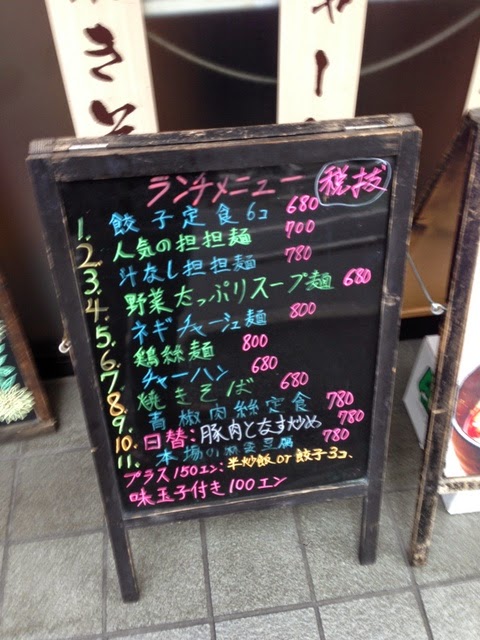 きそ
ャー
ランチメニュー 税抜
1. 餃子定食6コ 680
2. 人気の担担麺 700
3. 汁なし担担麺 780
4. 野菜たっぷりスープ麺 680
5. ネギチャーシュー麺 800
6. 鶏絲麺 800
7. チャーハン 680
8. 焼きそば 680
9. 青椒肉絲定食 780
10. 日替:豚肉となす炒め 780
11. 本場の麻婆豆腐 780
プラス150エン:半炒飯or餃子3コ、
味玉子付き100エン